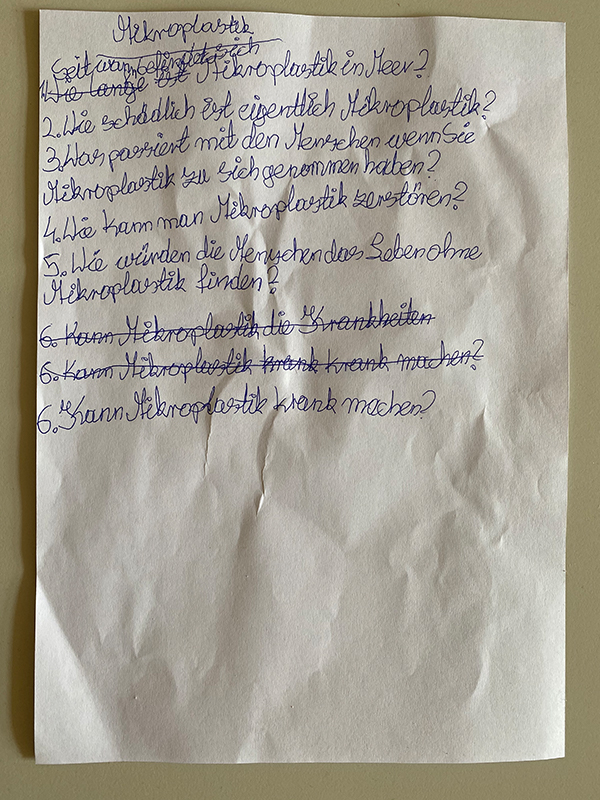 Mikroplastik
Seit wann befindet sich
1. Wie lange ist Mikroplastik in Meer?
2. Wie schädlich ist eigentlich Mikroplastik?
3. Was passiert mit den Menschen wenn Sie
Mikroplastik zu sich genommen haben?
4. Wie kann man Mikroplastik zerstören?
5. Wie würden die Menschen das Leben ohne
Mikroplastik finden?
6. Kann Mikroplastik die Krankheiten
6. Kann Mikroplastik krank krank machen?
6. Kann Mikroplastik krank machen?